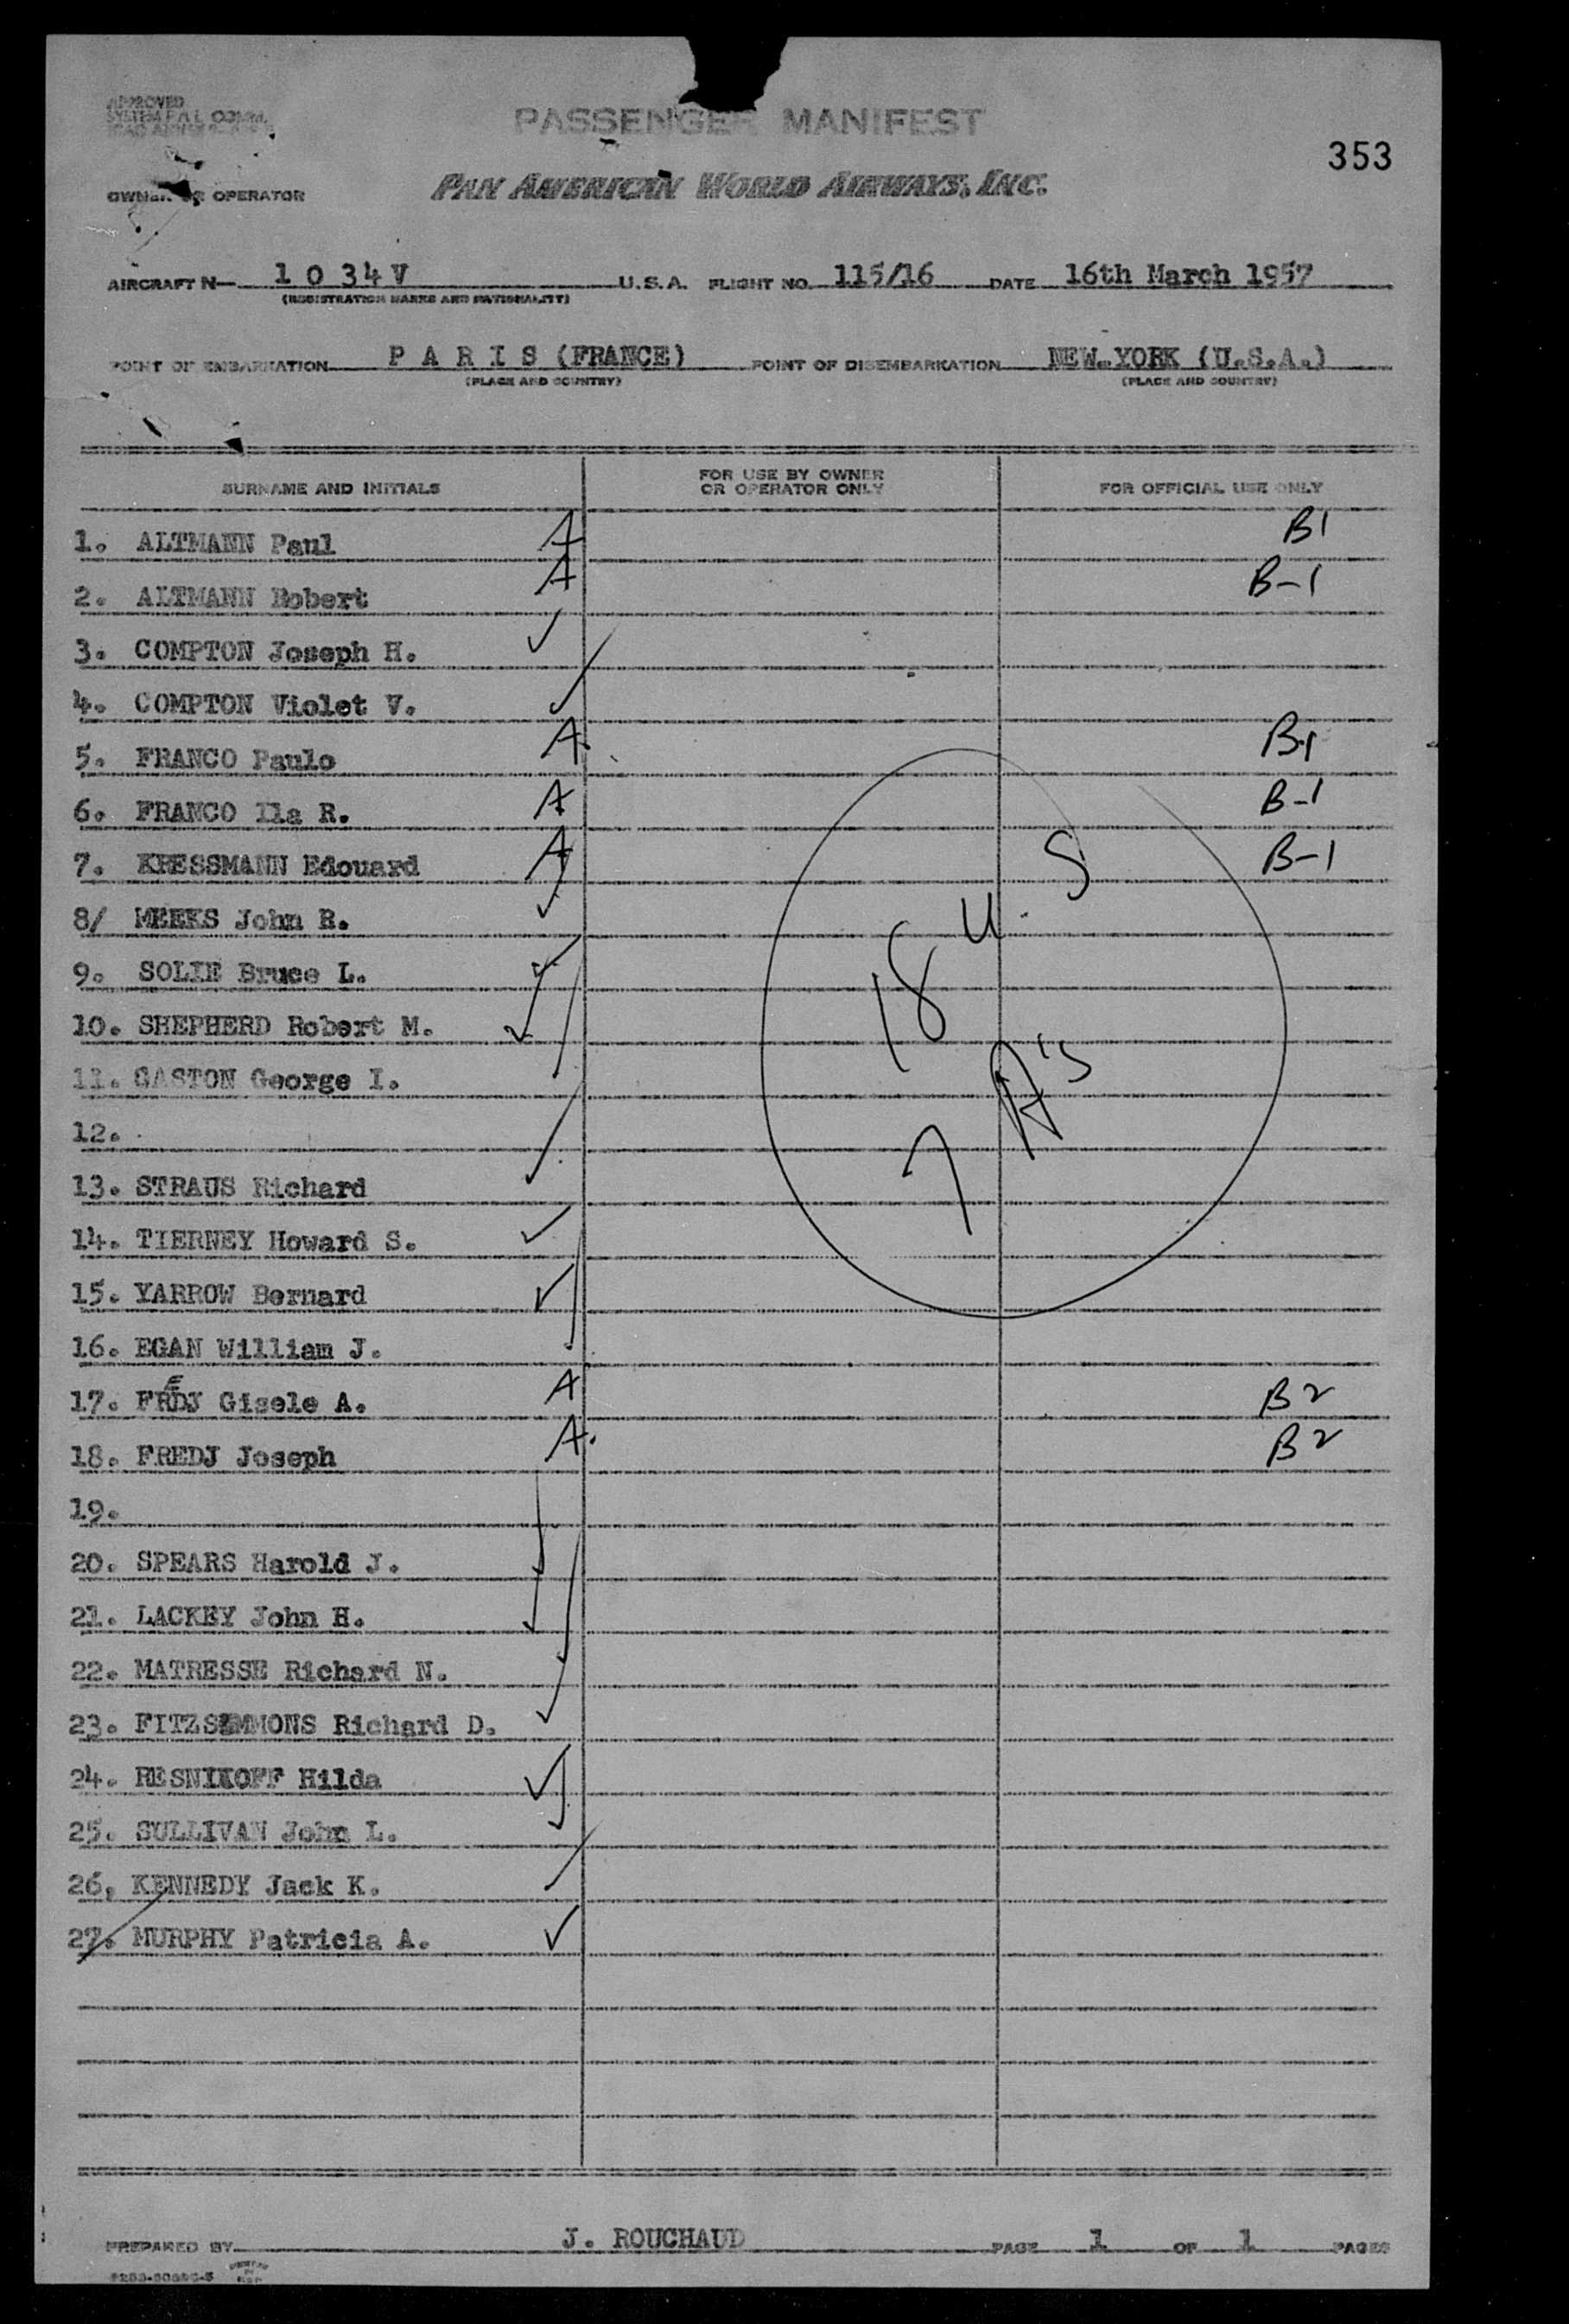 APPROVED
PASSENGER MANIFEST
353
OWNER OR OPERATOR PAN AMERICAN WORLD AIRWAYS, INC.
AIRCRAFT N— 1 0 34 V U.S.A. FLIGHT NO. 115/16 DATE 16th March 1957
(REGISTRATION MARKS AND NATIONALITY)
POINT OF EMBARKATION P A R I S (FRANCE) POINT OF DISEMBARKATION NEW YORK (U.S.A.)
(PLACE AND COUNTRY) (PLACE AND COUNTRY)
SURNAME AND INITIALS FOR USE BY OWNER OR OPERATOR ONLY FOR OFFICIAL USE ONLY
1. ALTMANN Paul A B1
2. ALTMANN Robert A B-1
3. COMPTON Joseph H.
4. COMPTON Violet V.
5. FRANCO Paulo A B-1
6. FRANCO Ila R. A B-1
7. KRESSMANN Edouard A B-1
8/ MEEKS John R.
18 U.S
9. SOLIE Bruce L.
10. SHEPHERD Robert M.
11. GASTON George I.
7 A's
12.
13. STRAUS Richard
14. TIERNEY Howard S.
15. YARROW Bernard
16. EGAN William J.
17. FREDJ Gisele A. A B2
18. FREDJ Joseph A B2
19.
20. SPEARS Harold J.
21. LACKEY John H.
22. MATRESSE Richard N.
23. FITZSIMMONS Richard D.
24. RESNIKOFF Hilda
25. SULLIVAN John L.
26, KENNEDY Jack K.
27. MURPHY Patricia A.
PREPARED BY J. ROUCHAUD PAGE 1 OF 1 PAGES